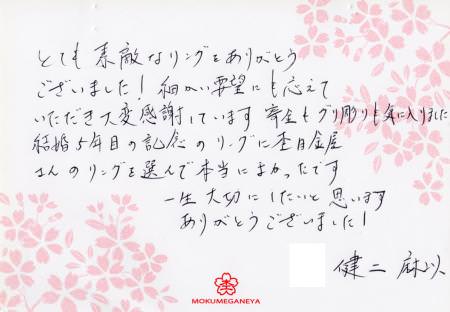 とても素敵なリングをありがとう
ございました！細かい要望にも応えて
いただき大変感謝しています 寄金もグリ彫りも気に入りました
結婚5年目の記念のリングに杢目金屋
さんのリングを選んで本当によかったです
一生大切にしたいと思います
ありがとうございました！
健二 麻以
MOKUMEGANEYA